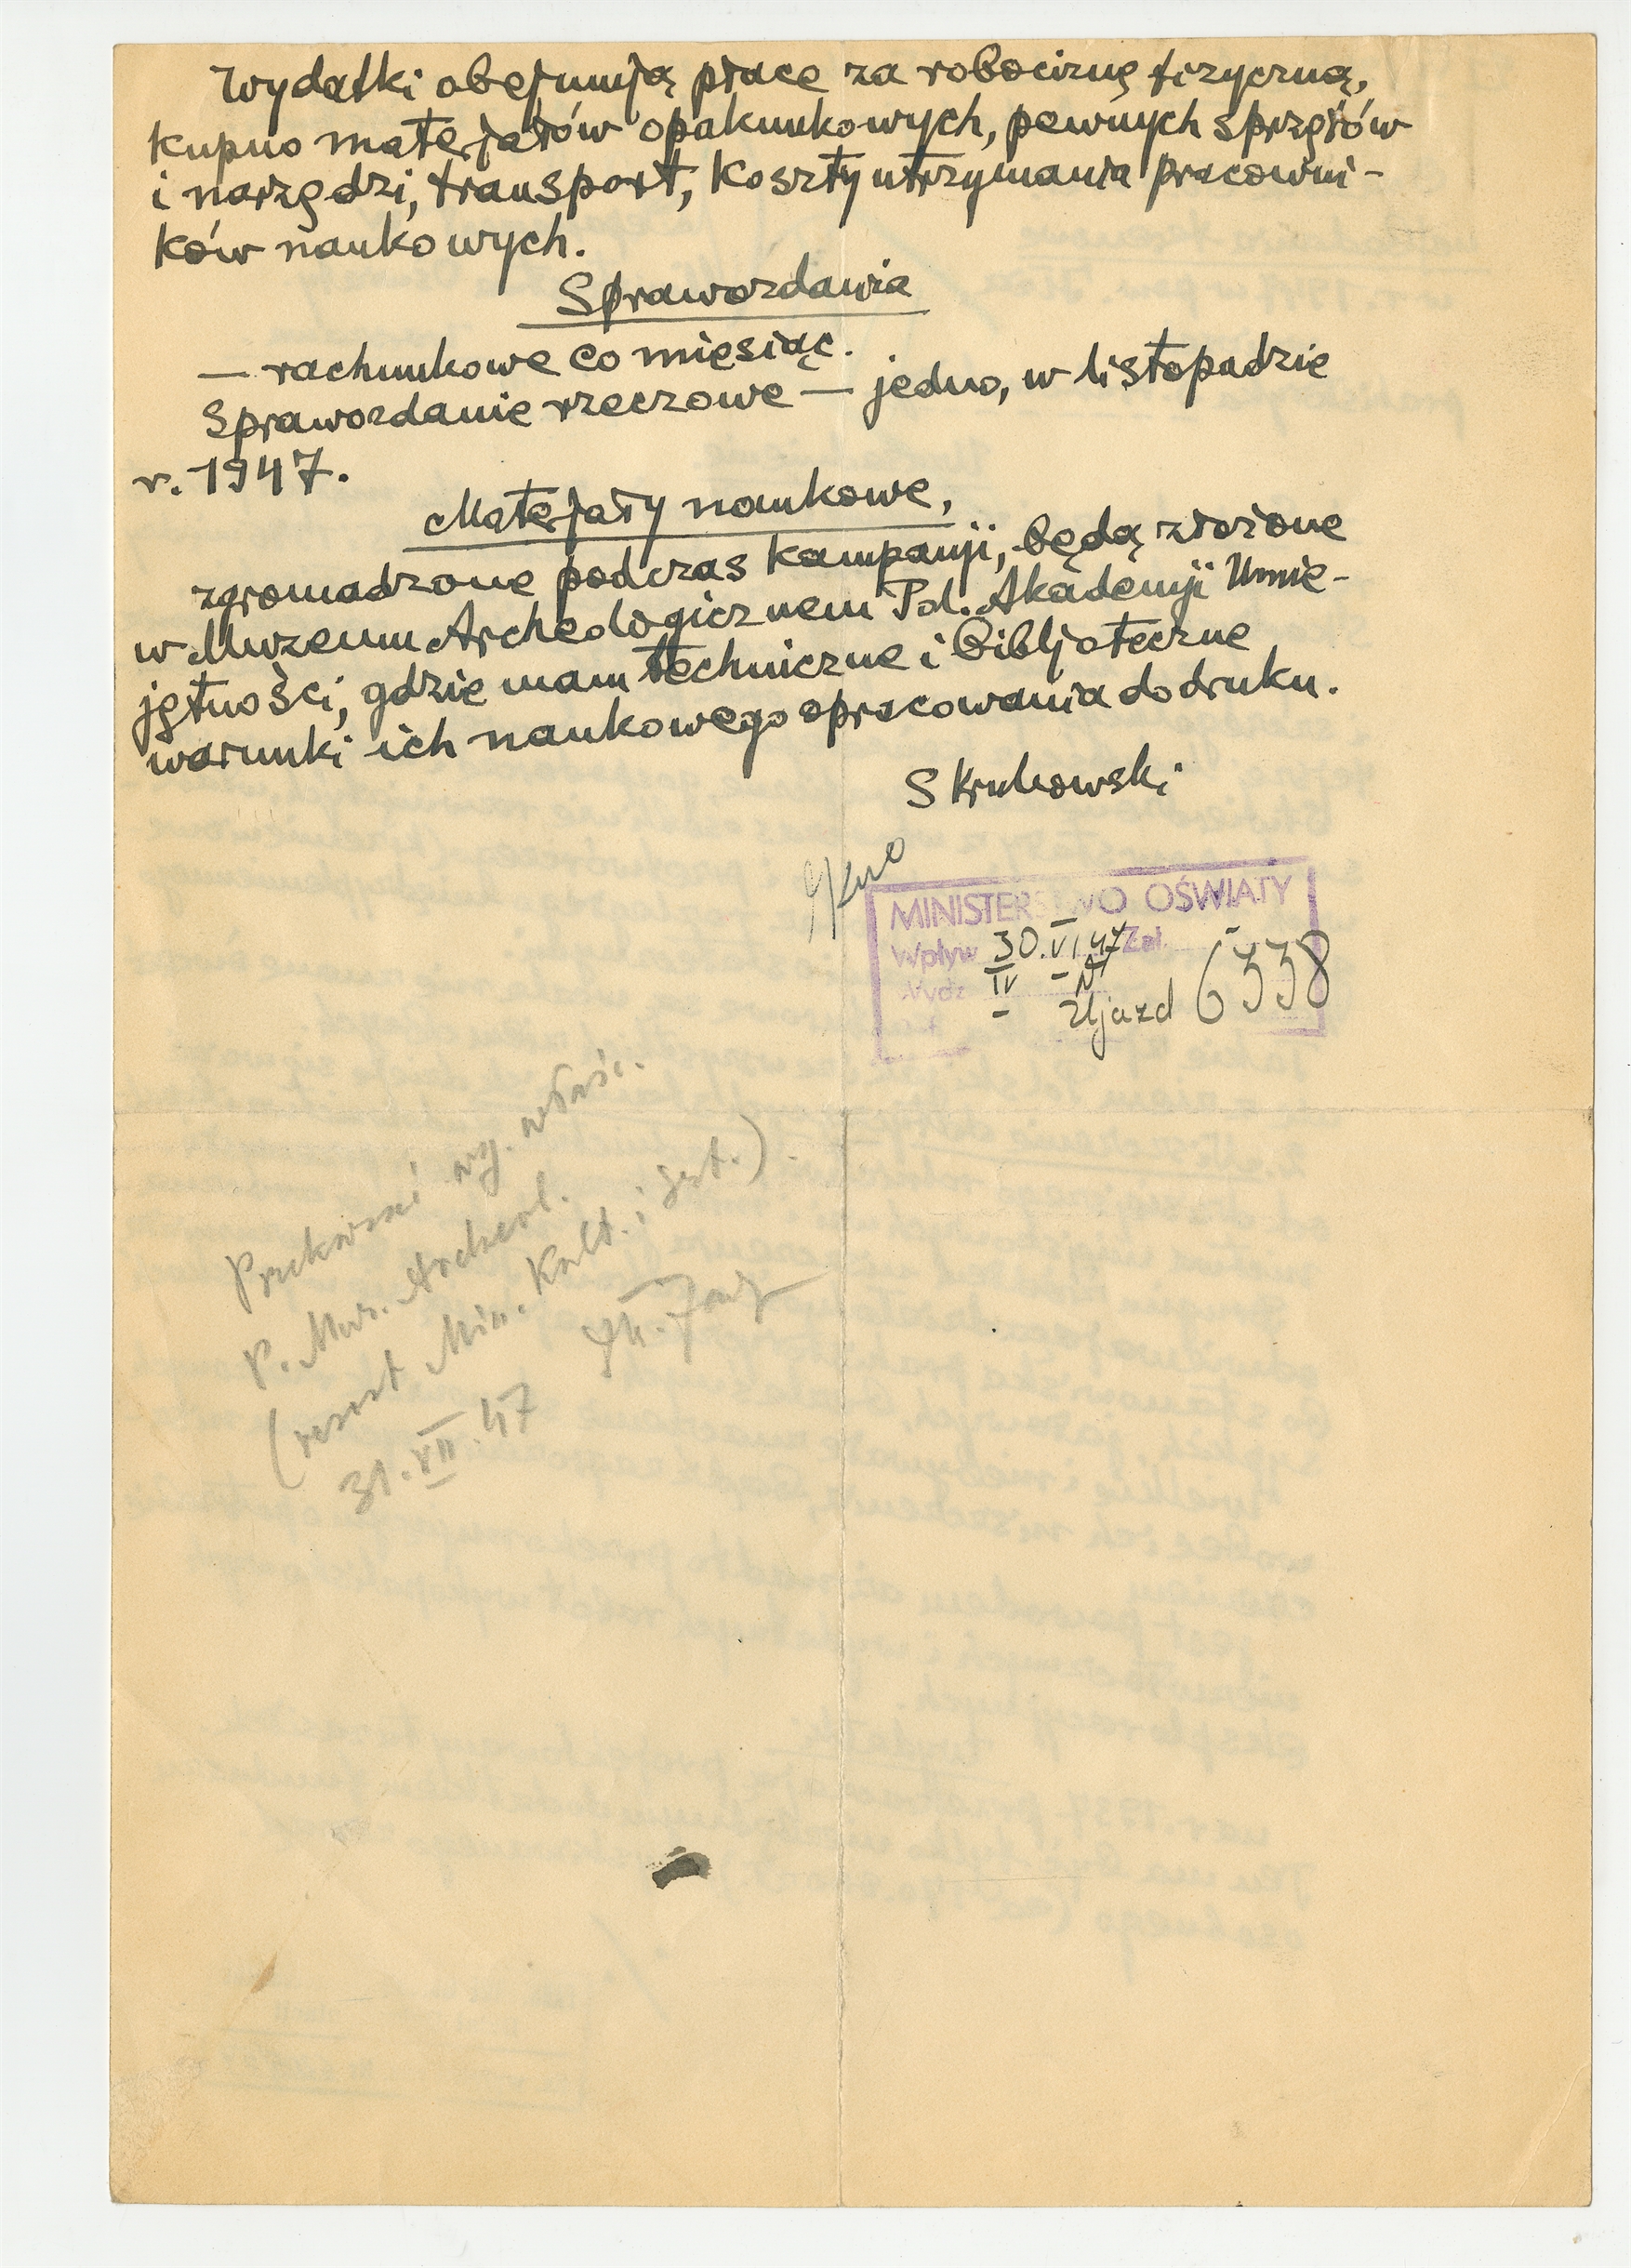 Wydatki obejmują płace za robociznę fizyczną,
kupno materjałów opakunkowych, pewnych sprzętów
i narzędzi, transport, koszty utrzymania pracowni-
ków naukowych.
Sprawozdania
— rachunkowe co miesiąc.
Sprawozdanie rzeczowe — jedno, w listopadzie
r. 1947.
Materjały naukowe,
zgromadzone podczas kampanji, będą złożone
w Muzeum Archeologicznem Pol. Akademji Umie-
jętności, gdzie mam techniczne i bibljoteczne
warunki ich naukowego opracowania do druku.
S Krukowski
MINISTERSTWO OŚWIATY
Wpływ 30.VI.47 Zał.
Wydz IV - N
Zjazd 6338
Przekazać wg. właśc.
P. Muz. Archeol.
(resort Min. Kult. i Szt.).
31.VII.47